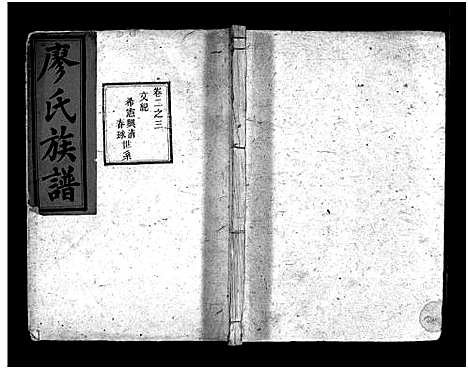 廖氏族譜
卷二之三
文紀
希憲興清世系
春球